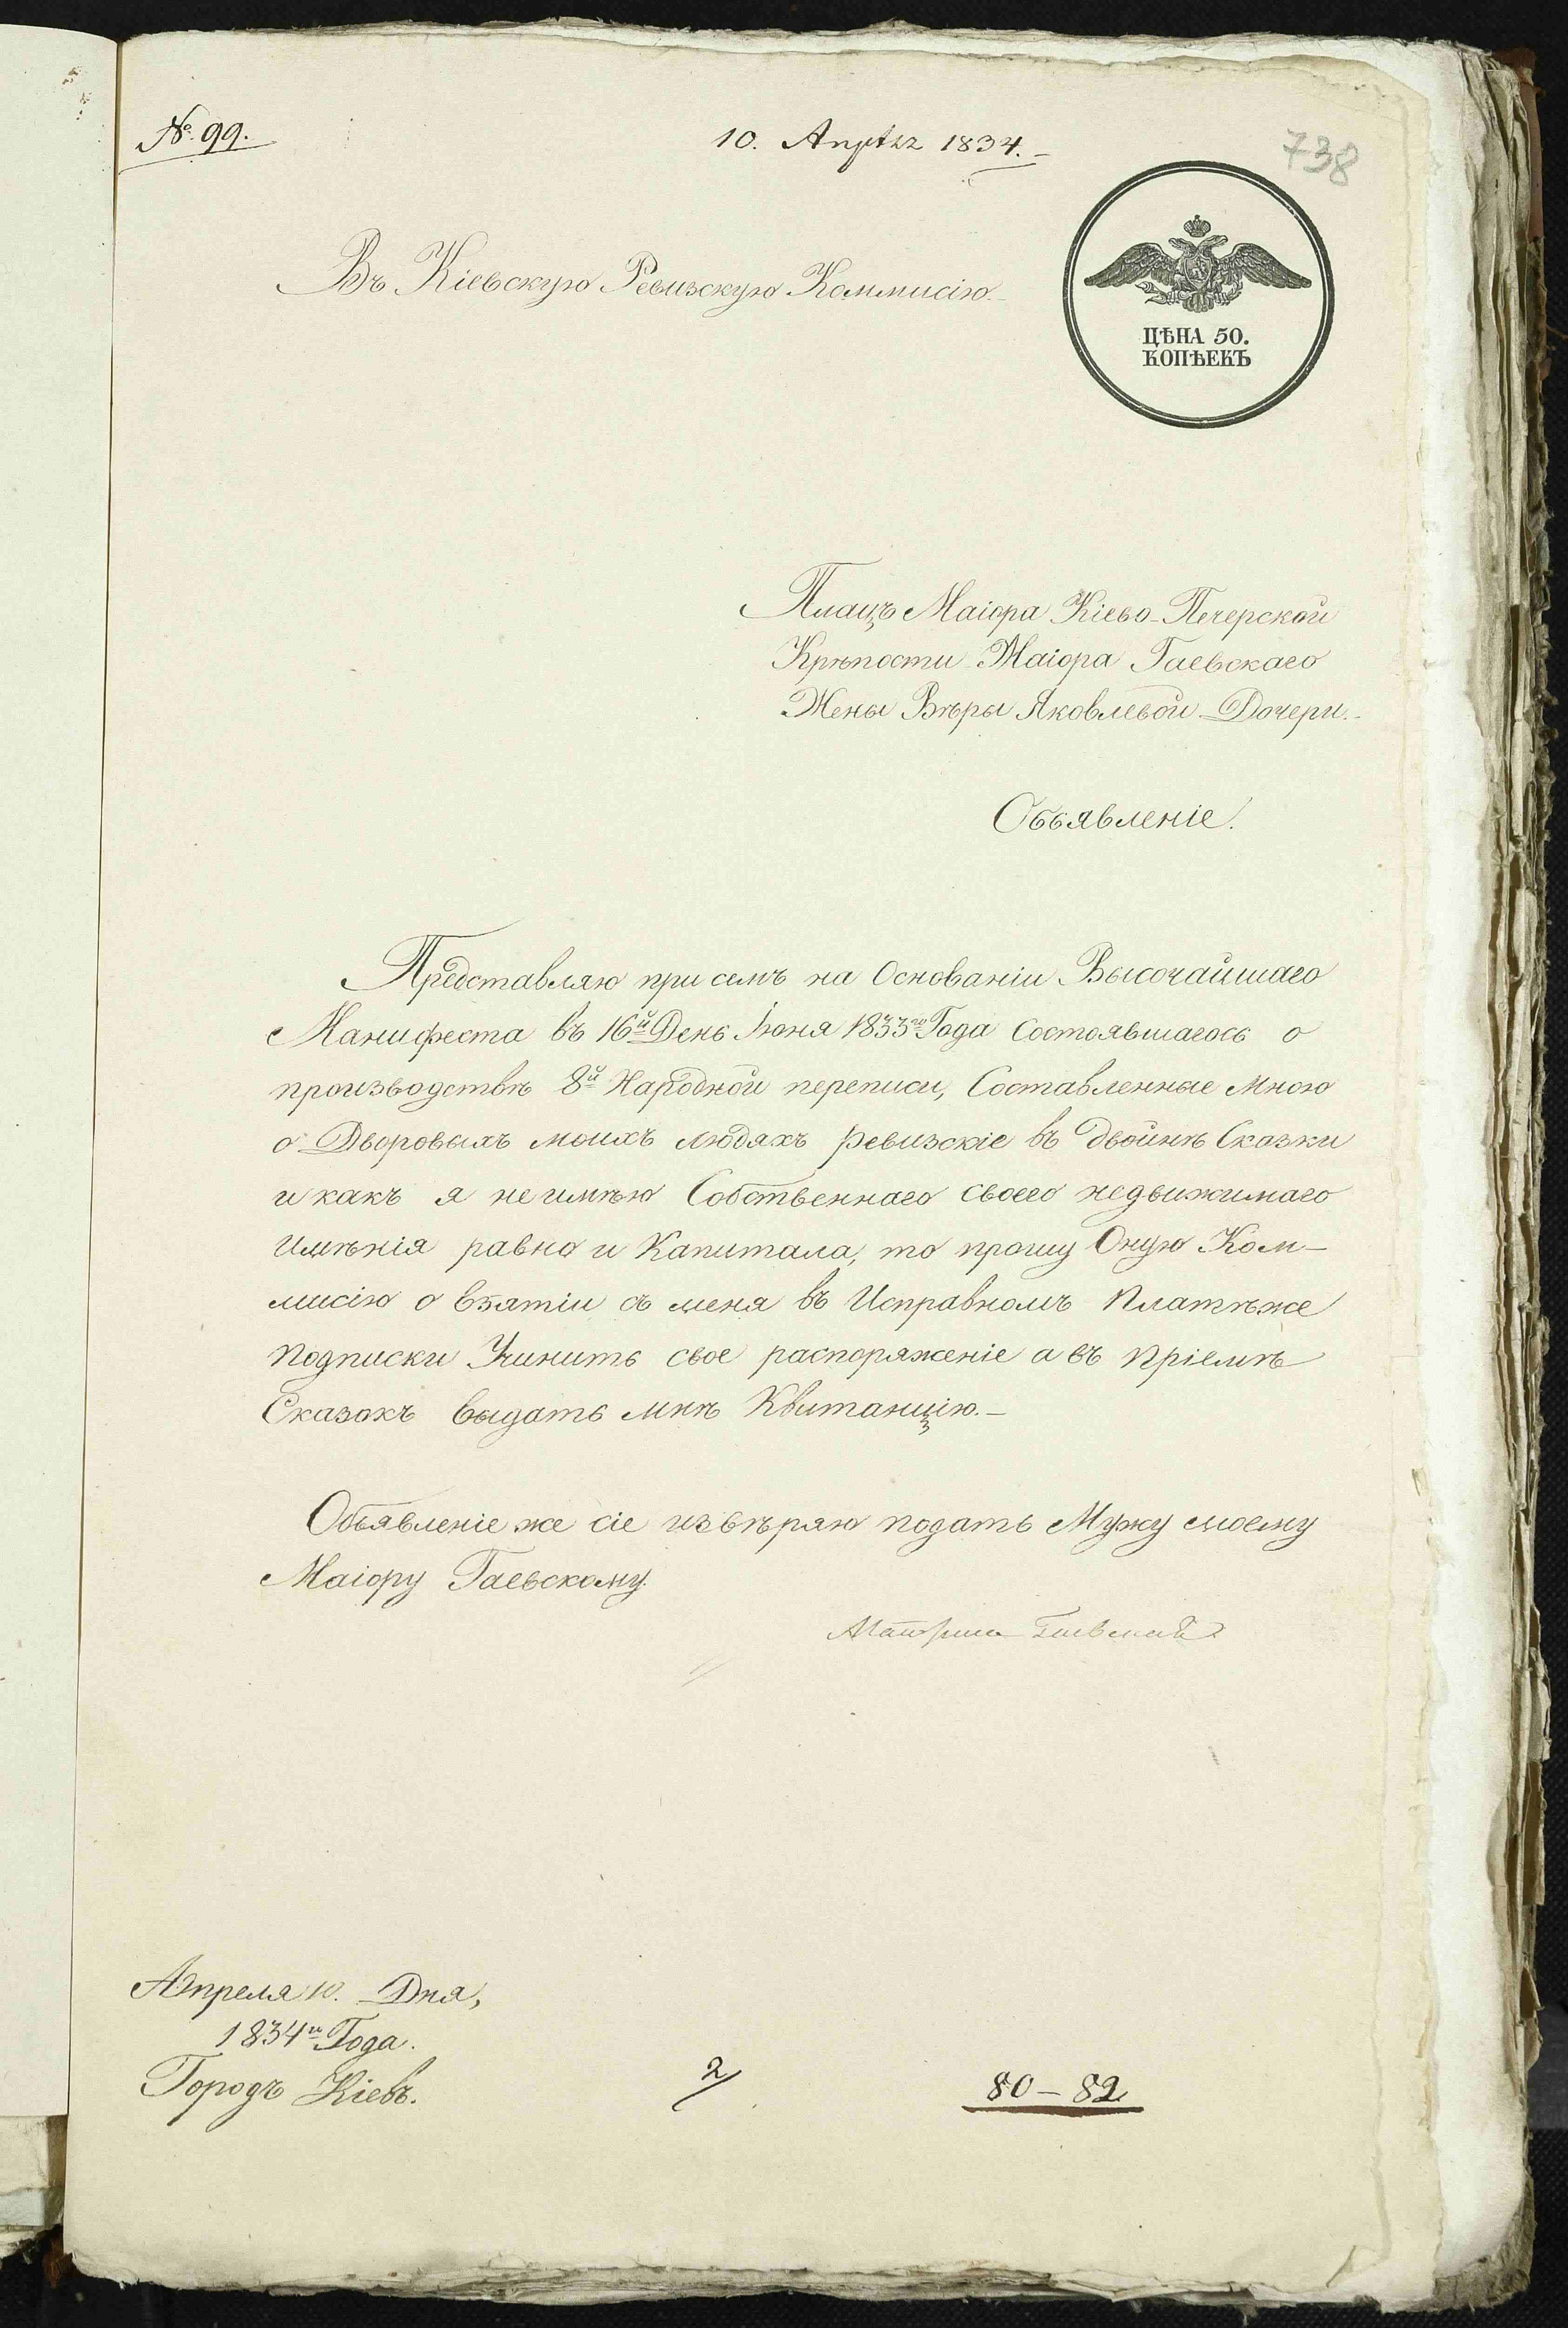 № 99.
10. Апрѣля 1834.
738
Въ Кіевскую Ревизскую Коммисію.
ЦѢНА 50.
КОПѢЕКЪ
Плацъ Маіора Кіево-Печерской
Крѣпости Маіора Гаевскаго
Жены Вѣры Яковлевой Дочери.
Объявленіе.
Представляю при семъ на Основаніи Высочайшаго
Манифеста въ 16й День Іюня 1833го Года Состоявшагось о
производствѣ 8й Народной переписи, Составленные мною
о Дворовыхъ моихъ людяхъ ревизскіе въ двойнѣ Сказки
и какъ я не имѣю Собственнаго своего недвижимаго
Имѣнія равно и Капитала, то прошу Оную Ком-
мисію о взятіи съ меня въ Исправномъ Платѣже
Подписки Учинить свое распоряженіе а въ Пріемѣ
Сказокъ выдать мнѣ Квитанцію.
Объявленіе же сіе извѣряю подать Мужу моему
Маіору Гаевскому.
Апреля 10. Дня,
1834го Года.
Городъ Кіевъ.
2
80-82